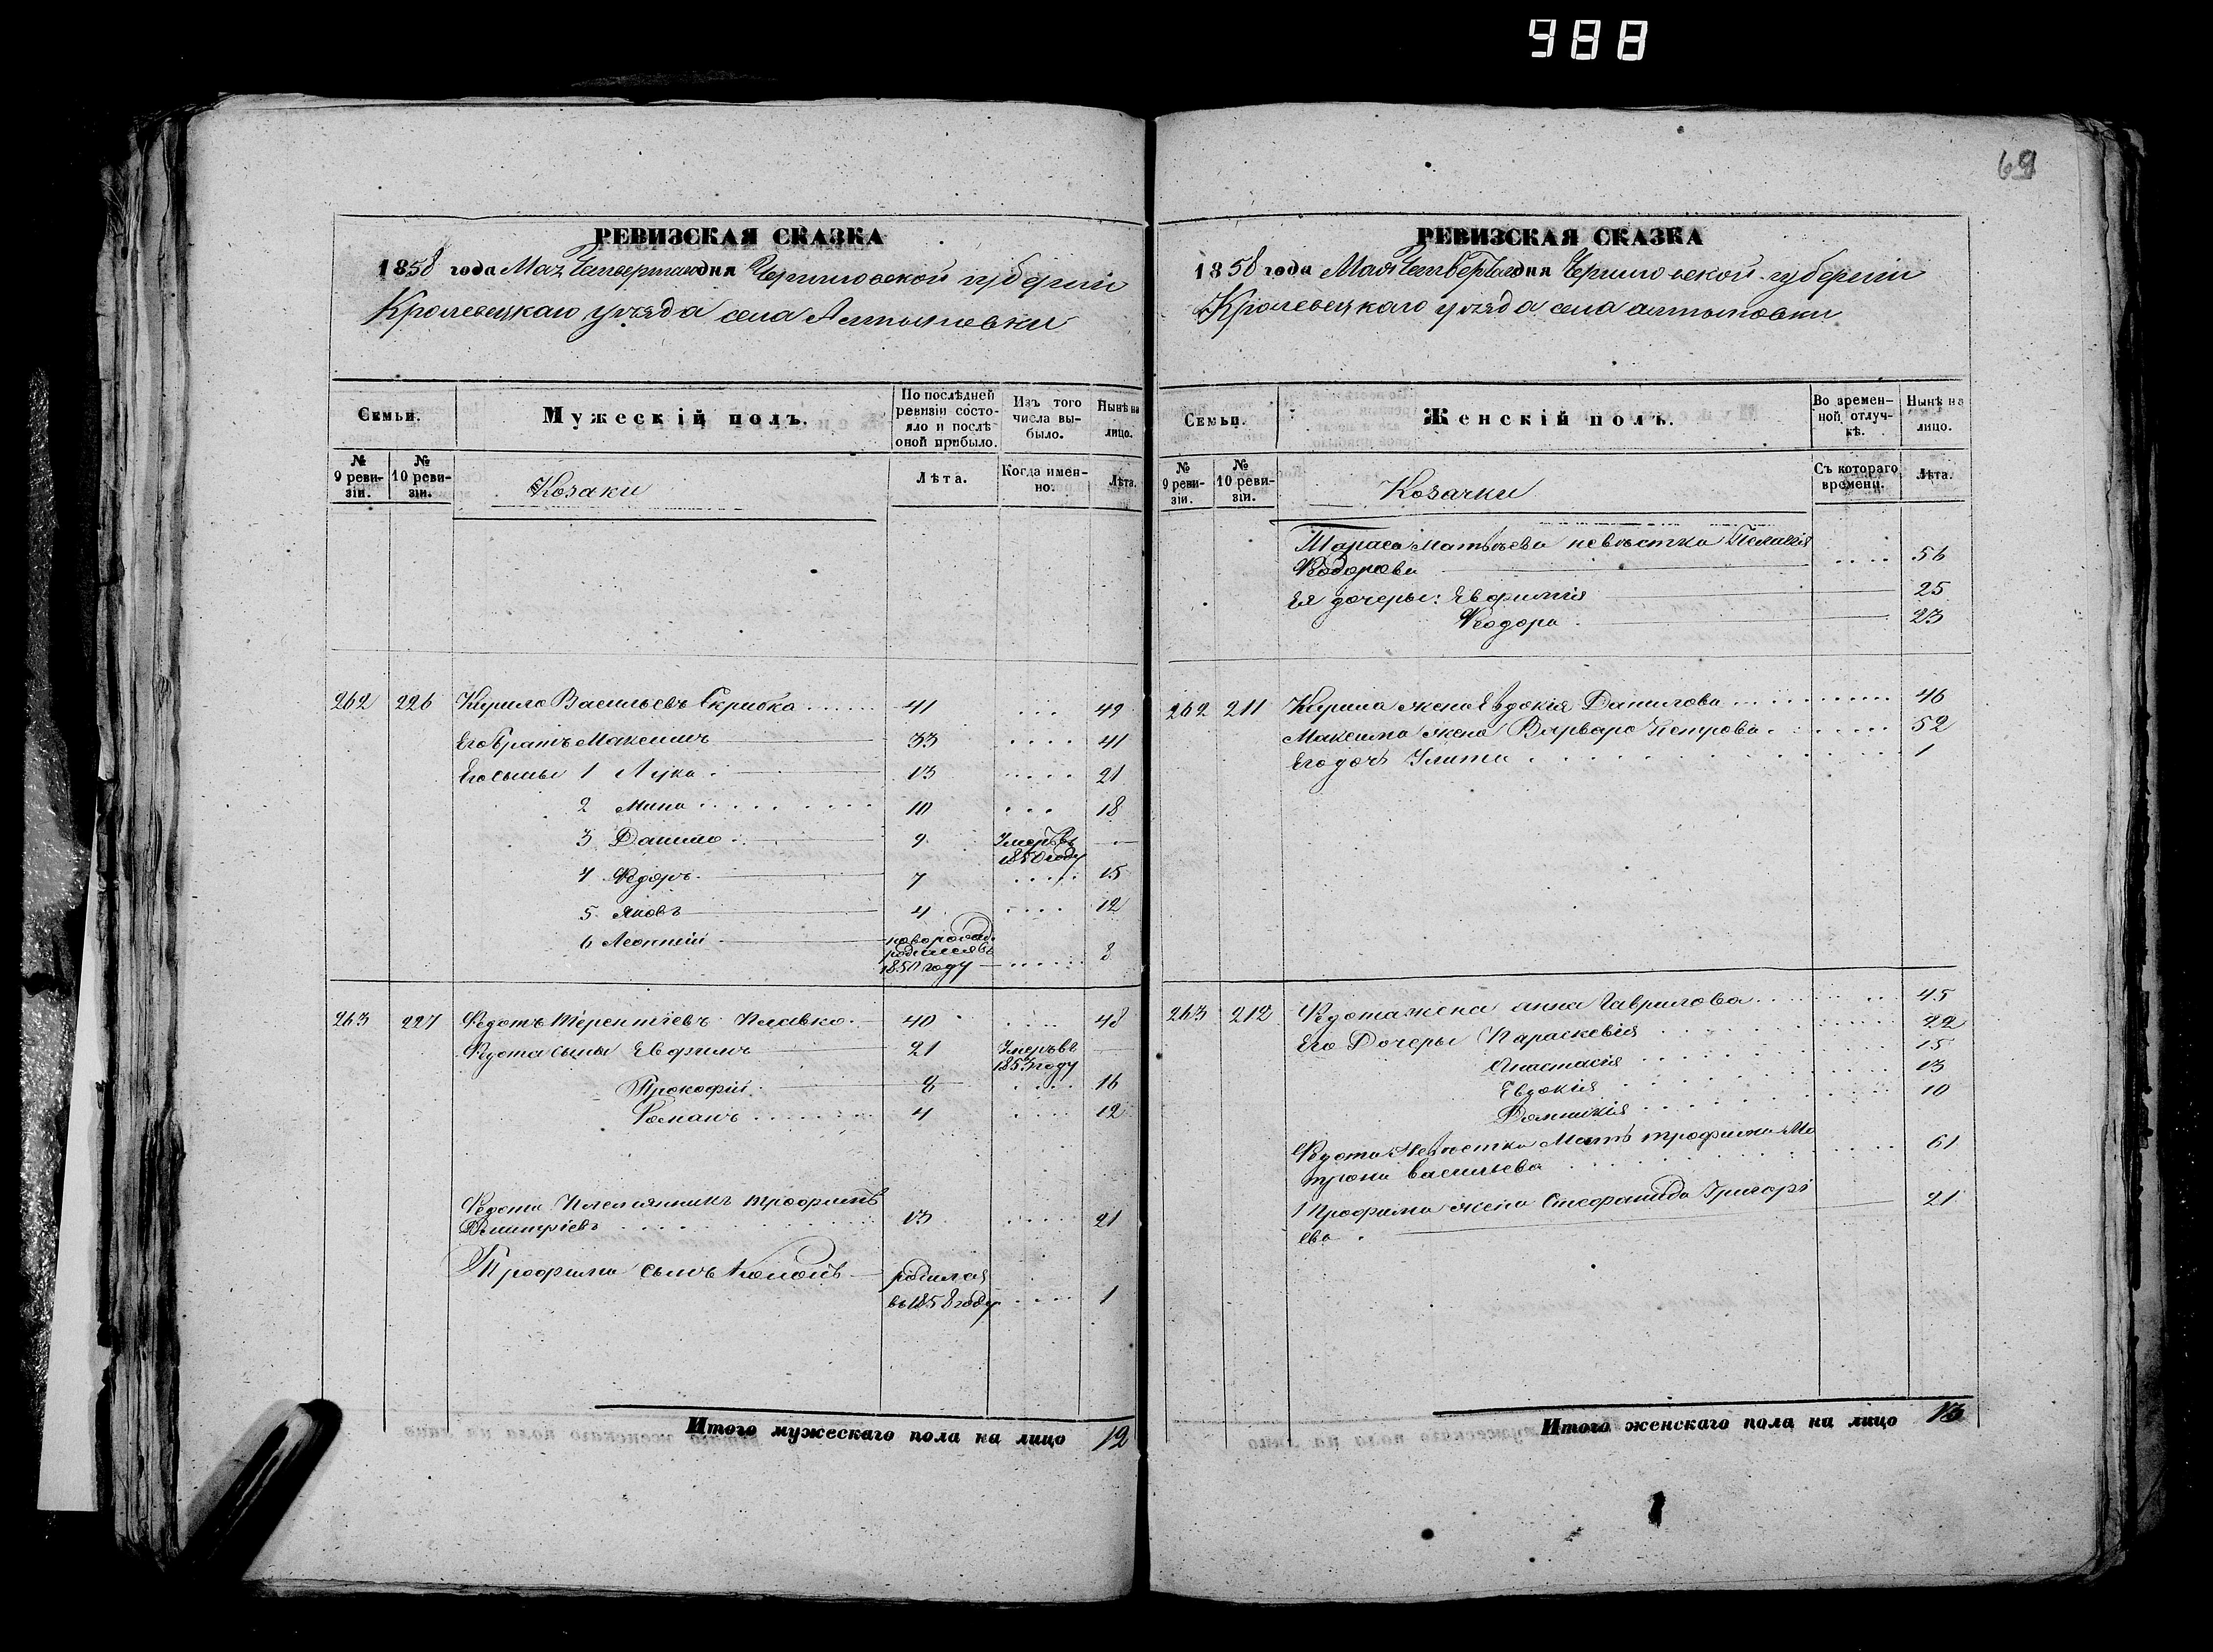 988
69
РЕВИЗСКАЯ СКАЗКА
1858 года Мая Четвертаго дня Черниговской губерніи
Кролевецкаго уезда села Алтыновки
Семьи.
Мужескій полъ.
По послѣдней ревизіи состояло и послѣ оной прибыло.
Изъ того числа выбыло.
Нынѣ на лицо.
№ 9 ревизіи.
№ 10 ревизіи.
Козаки
Лѣта.
Когда именно.
Лѣта.
262 226 Кирило Васильевъ Скрибка 41 49
Его братъ Максимъ 33 41
Его сыны 1 Лука 13 21
2 Мина 10 18
3 Данило 9 Умеръ въ 1850 году
4 Федоръ 7 15
5 Яковъ 4 12
6 Леонтій новорожд. родился въ 1850 году 8
263 227 Федотъ Терентіевъ Плавко 40 48
Федота сыны Евфимъ 21 Умеръ въ 1853 году
Прокофій 8 16
Романъ 4 12
Федота Племянникъ Трофимъ
Дмитріевъ 13 21
Трофима сынъ Кононъ родился
въ 1858 году 1
Итого мужескаго пола на лицо 12
РЕВИЗСКАЯ СКАЗКА
1858 года Мая Четвертаго дня Черниговской губерніи
Кролевецкаго уезда села алтыновки
Семьи.
Женскій полъ.
Во временной отлучкѣ.
Нынѣ на лицо.
№ 9 ревизіи.
№ 10 ревизіи.
Козачки
Съ котораго времени.
Лѣта.
Тараса Матвѣева невѣстка Пелагія
Федорова 56
Ея дочеры: Евфимія 25
Феодора 23
262 211 Кирила жена Евдокія Данилова 46
Максима жена Варвара Петрова 52
Его дочь Улита 1
263 212 Федота жена Анна Гаврилова 45
Его Дочеры Параскевія 22
Анастасія 15
Евдокія 13
Домникія 10
Федота Невѣстка Мать трофима Ма
трона Васильева 61
Трофима жена Стефанида Григорі
ева 21
Итого женскаго пола на лицо 13